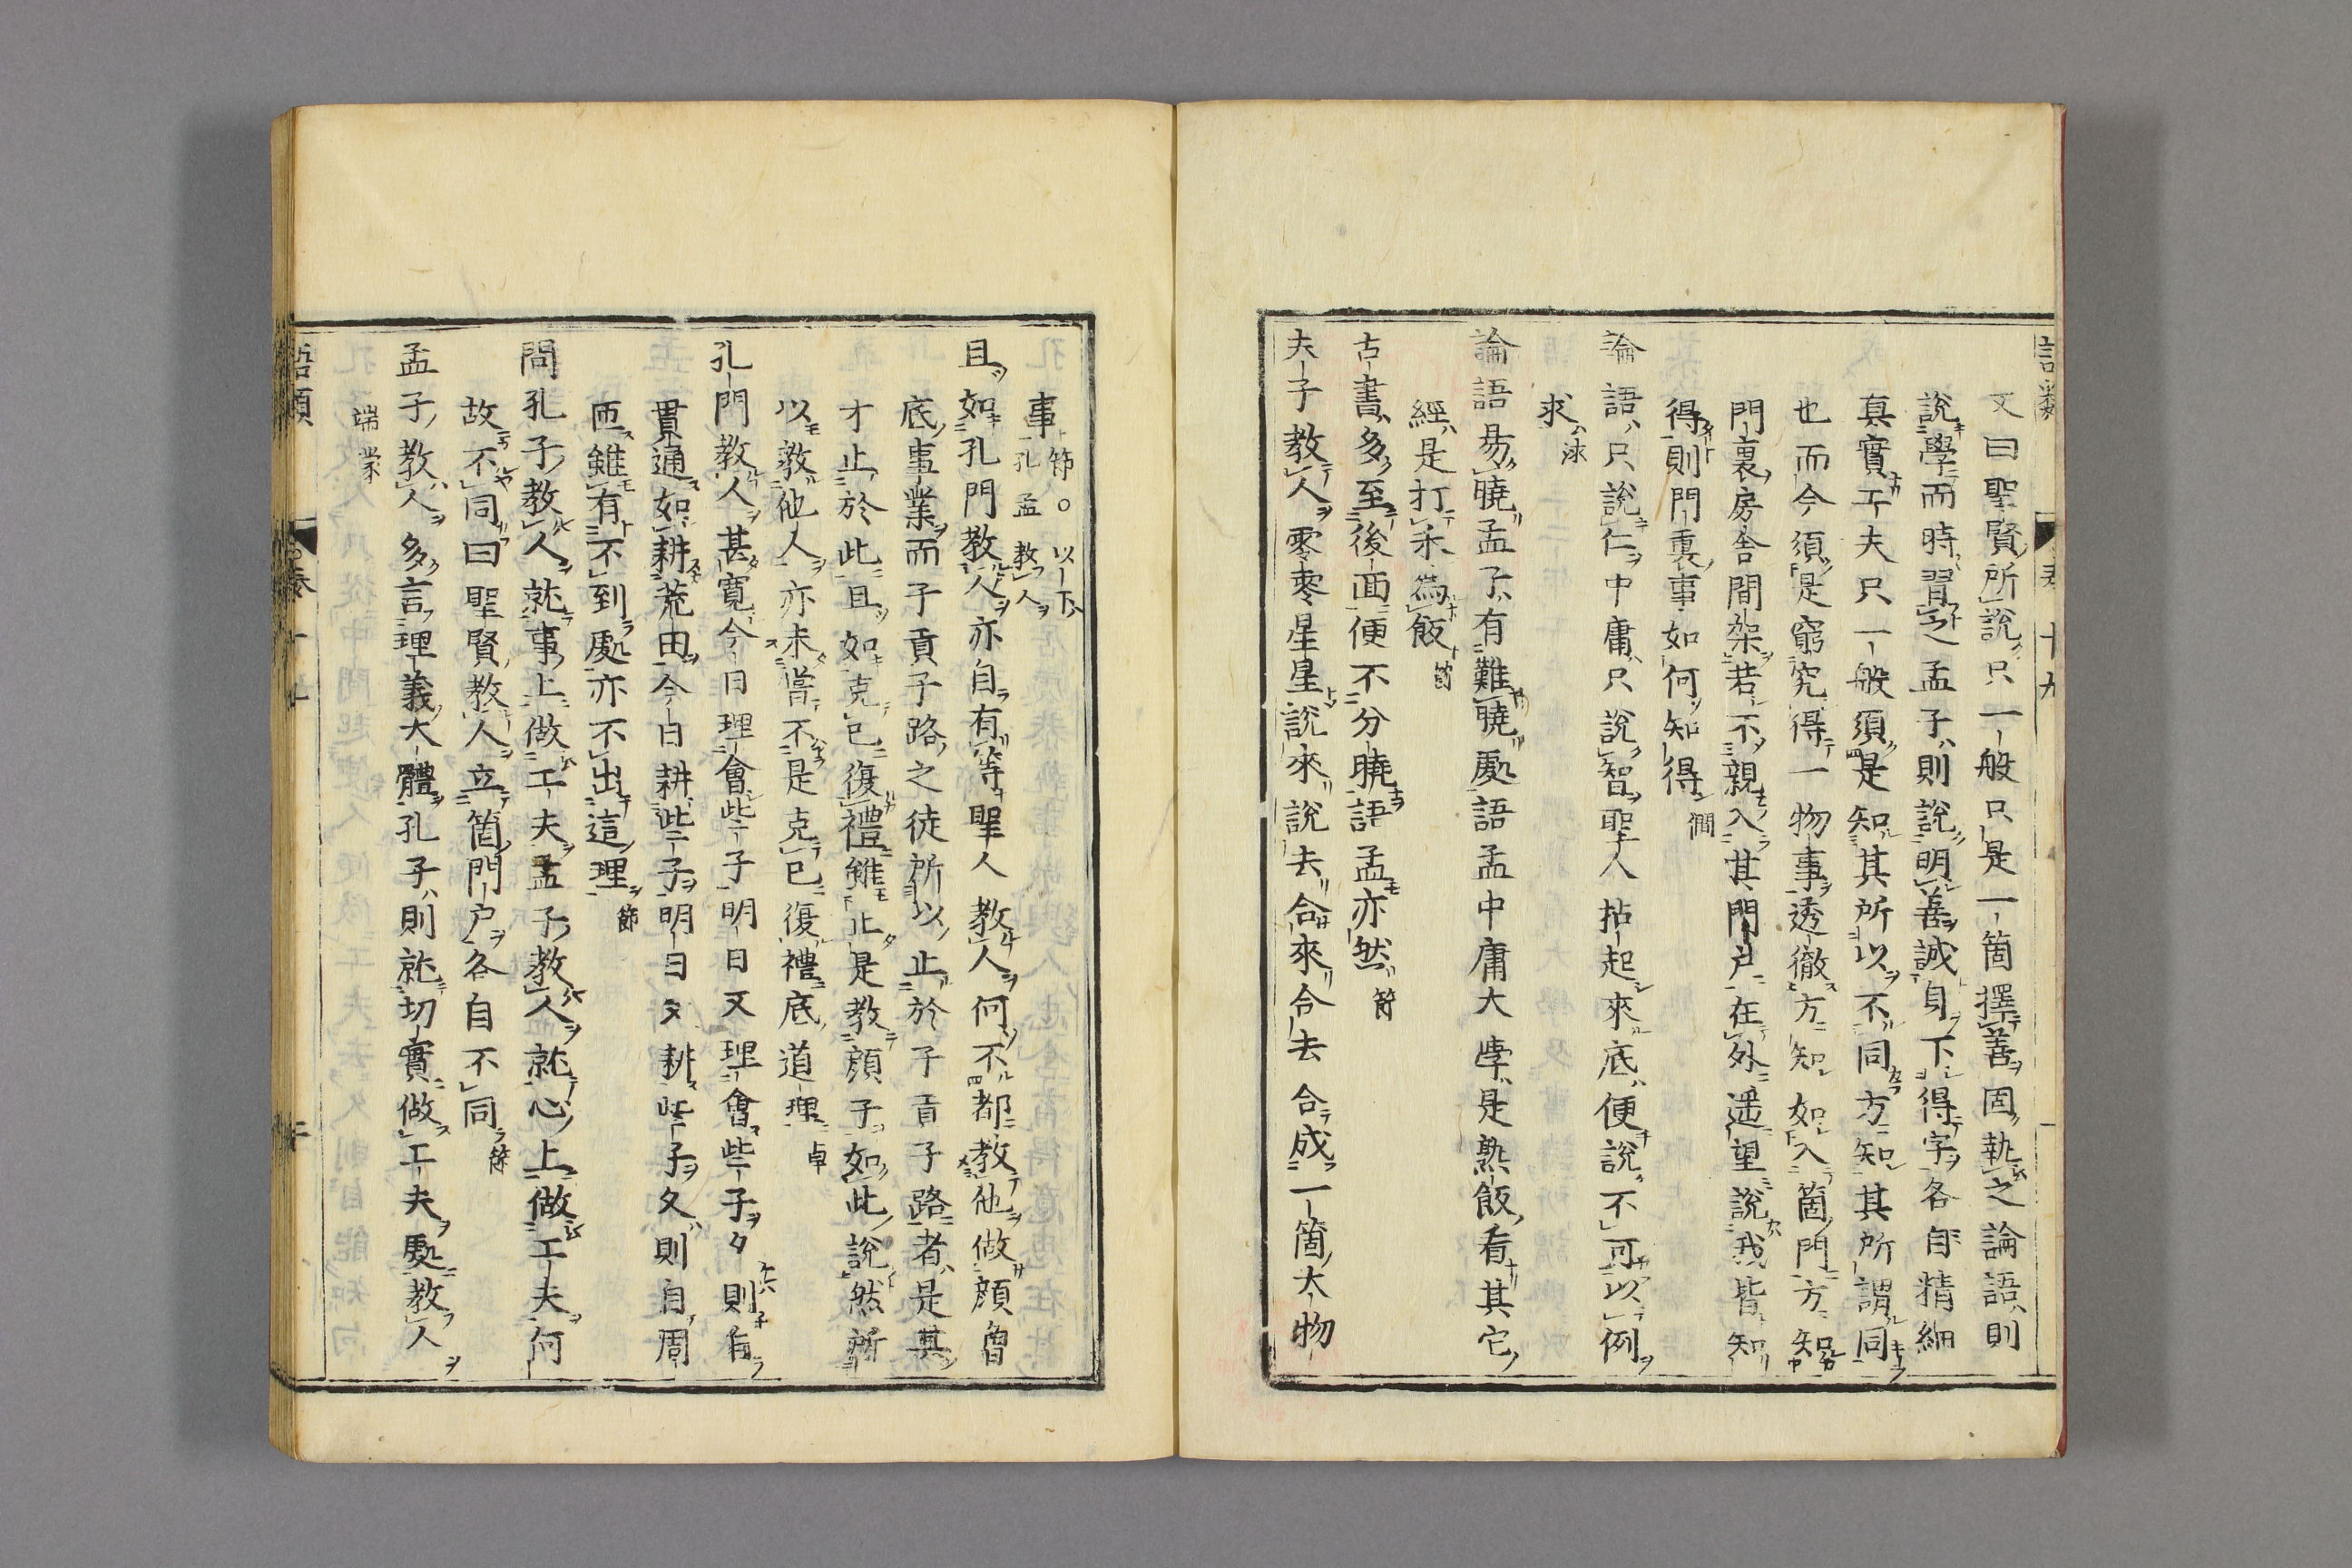 語類
卷十九
一
又曰聖賢所說只一般只是一箇擇善固執之論語則
說學而時習之孟子則說明善誠身下得字各自精細
真實工夫只一般須是知其所以不同方知其所謂同
也而今須是窮究得一物事透徹方知如入箇門方知
門裏房舍間架若不親入其門戶在外遥望說我皆知
得則門裏事如何知得僩
論語只說仁中庸只說智聖人拈起來底便說不可以例
求泳
論語易曉孟子有難曉處語孟中庸大學是熟飯看其它
經是打禾為飯節
古書多至後面便不分曉語孟亦然節
夫子教人零零星星說來說去合來合去合成一箇大物
事節○以下孔孟教人
且如孔門教人亦自有等聖人教人何不都教他做顏曽
底事業而子貢子路之徒所以止於子貢子路者是其
才止於此且如克己復禮雖止是教顏子如此說然所
以教他人亦未嘗不是克己復禮底道理卓
孔門教人甚寬今日理會些子明日又理會些子久則有
貫通如耕荒田今日耕些子明日又耕些子久則自周
匝雖有不到處亦不出這理節
問孔子教人就事上做工夫孟子教人就心上做工夫何
故不同曰聖賢教人立箇門戶各自不同節
孟子教人多言理義大體孔子則就切實做工夫處教人
端蒙
語類
卷十